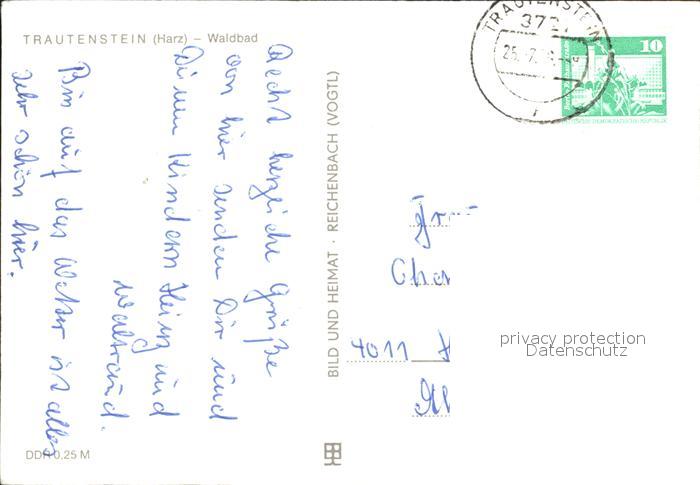 TRAUTENSTEIN (Harz) – Waldbad
Recht herzliche Grüße
von hier senden Dir und
Deinen Kindern Heinz und
Waltraud.
Bis auf das Wetter ist alles
sehr schön hier.
DDR 0,25 M
BILD UND HEIMAT · REICHENBACH (VOGTL)
TRAUTENSTEIN
372
25.-7.
10
DEUTSCHE DEMOKRATISCHE REPUBLIK
4011
privacy protection
Datenschutz